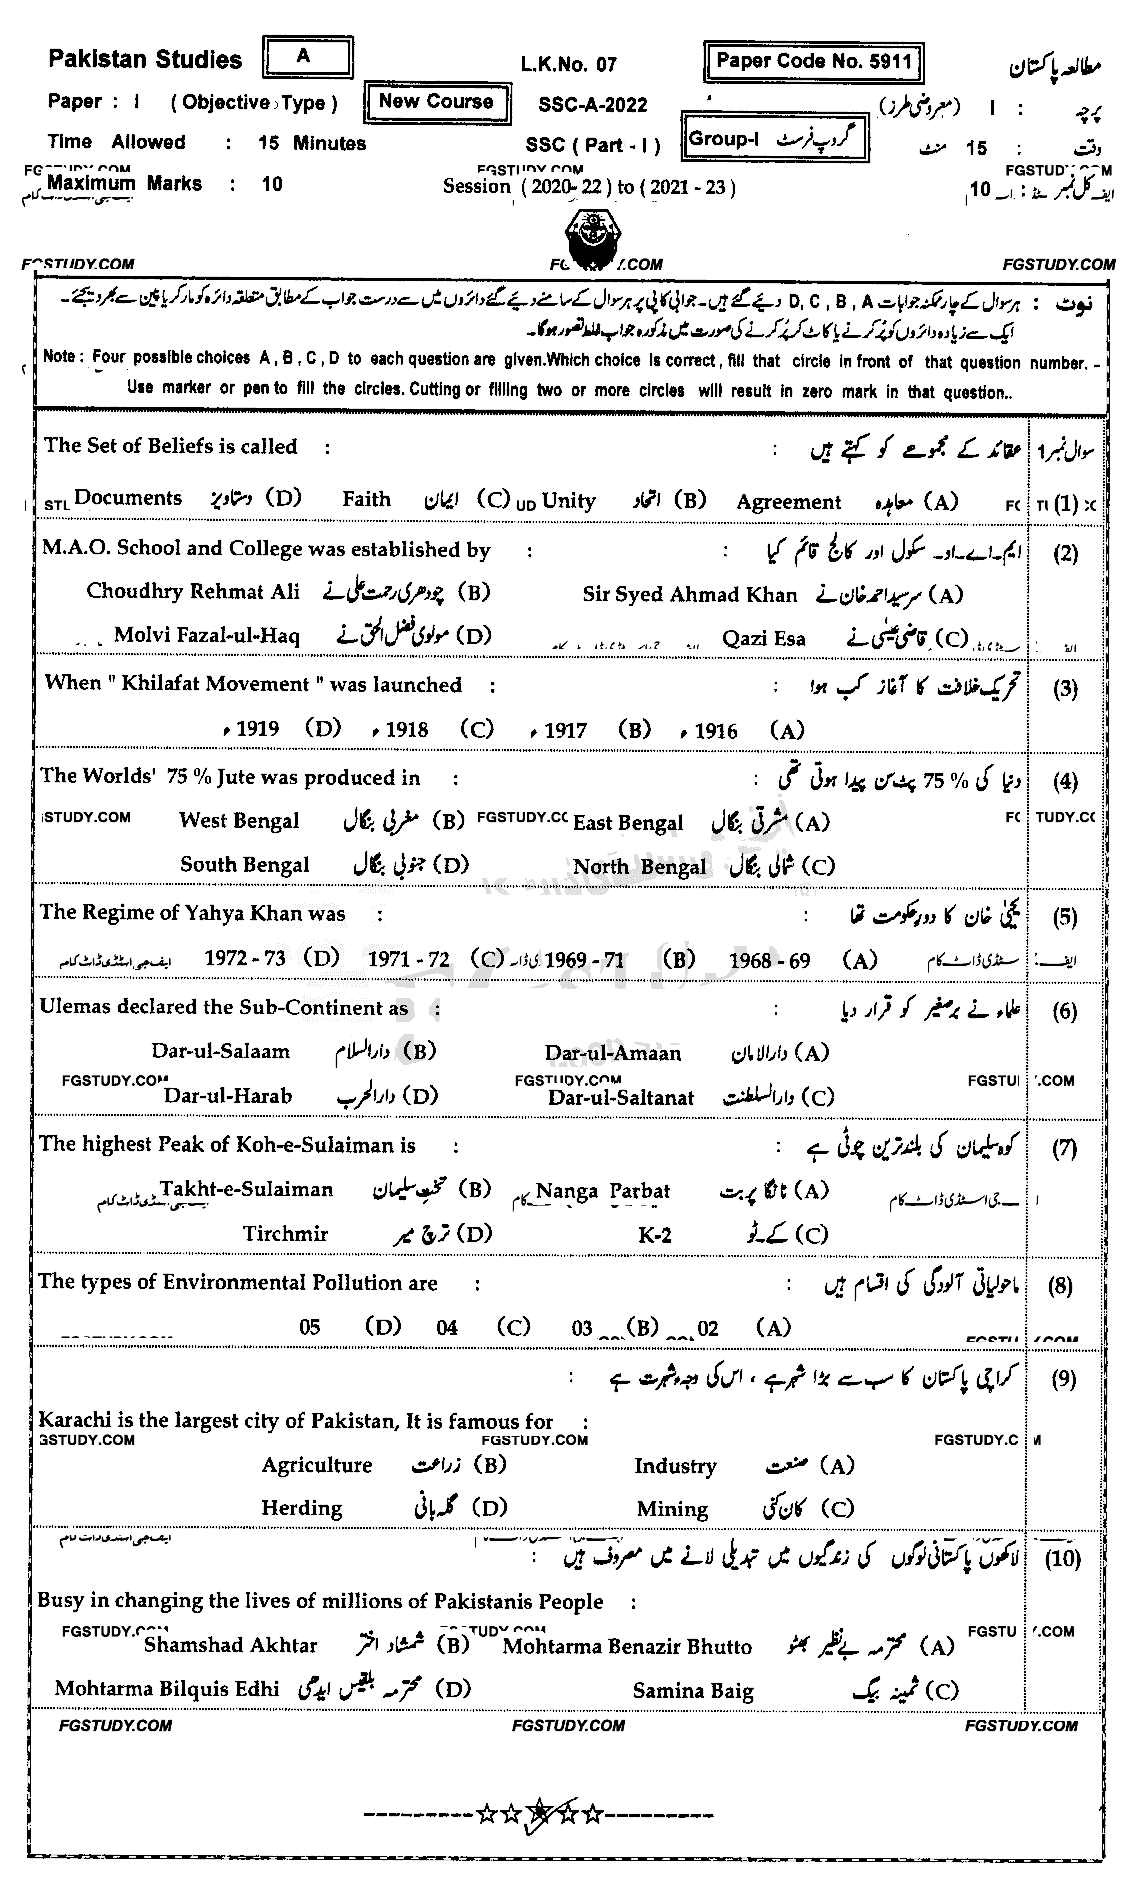 Pakistan Studies A L.K.No. 07 Paper Code No. 5911 مطالعہ پاکستان
Paper : I ( Objective Type ) New Course SSC-A-2022 پرچہ : I (معروضی طرز)
Time Allowed : 15 Minutes SSC ( Part - I ) Group-I گروپ فرسٹ وقت : 15 منٹ
FGSTUDY.COM FGSTUDY.COM
Maximum Marks : 10 Session ( 2020-22 ) to ( 2021 - 23 ) کل نمبر : 10
FGSTUDY.COM FGSTUDY.COM
نوٹ : ہر سوال کے چار ممکنہ جوابات D, C, B, A دیئے گئے ہیں۔ جوابی کاپی پر ہر سوال کے سامنے دیئے گئے دائروں میں سے درست جواب کے مطابق متعلقہ دائرہ کو مارکر یا پین سے بھر دیجئے۔
ایک سے زیادہ دائروں کو پُر کرنے یا کاٹ کر پُر کرنے کی صورت میں مذکورہ جواب غلط تصور ہوگا۔
Note : Four possible choices A , B , C , D to each question are given.Which choice is correct , fill that circle in front of that question number. -
Use marker or pen to fill the circles. Cutting or filling two or more circles will result in zero mark in that question..
The Set of Beliefs is called : عقائد کے مجموعے کو کہتے ہیں : سوال نمبر 1
Documents دستاویز (D) Faith ایمان (C) Unity اتحاد (B) Agreement معاہدہ (A) (1)
M.A.O. School and College was established by : ایم۔اے۔او۔ سکول اور کالج قائم کیا : (2)
Choudhry Rehmat Ali چودھری رحمت علی نے (B) Sir Syed Ahmad Khan سرسید احمد خان نے (A)
Molvi Fazal-ul-Haq مولوی فضل الحق نے (D) Qazi Esa قاضی عیسیٰ نے (C)
When " Khilafat Movement " was launched : تحریک خلافت کا آغاز کب ہوا : (3)
1919ء (D) 1918ء (C) 1917ء (B) 1916ء (A)
The Worlds' 75 % Jute was produced in : دنیا کی 75 % پٹ سن پیدا ہوتی تھی : (4)
West Bengal مغربی بنگال (B) FGSTUDY.CO East Bengal مشرقی بنگال (A)
South Bengal جنوبی بنگال (D) North Bengal شمالی بنگال (C)
The Regime of Yahya Khan was : یحییٰ خان کا دور حکومت تھا : (5)
1972 - 73 (D) 1971 - 72 (C) 1969 - 71 (B) 1968 - 69 (A)
Ulemas declared the Sub-Continent as : علماء نے برصغیر کو قرار دیا : (6)
Dar-ul-Salaam دارالسلام (B) Dar-ul-Amaan دارالامان (A)
FGSTUDY.COM FGSTUDY.COM
Dar-ul-Harab دارالحرب (D) Dar-ul-Saltanat دارالسلطنت (C)
The highest Peak of Koh-e-Sulaiman is : کوہ سلیمان کی بلند ترین چوٹی ہے : (7)
Takht-e-Sulaiman تخت سلیمان (B) Nanga Parbat نانگا پربت (A)
Tirchmir ترچ میر (D) K-2 کے۔ٹو (C)
The types of Environmental Pollution are : ماحولیاتی آلودگی کی اقسام ہیں : (8)
05 (D) 04 (C) 03 (B) 02 (A)
کراچی پاکستان کا سب سے بڑا شہر ہے ، اس کی وجہ شہرت ہے : (9)
Karachi is the largest city of Pakistan, It is famous for :
GSTUDY.COM FGSTUDY.COM FGSTUDY.C M
Agriculture زراعت (B) Industry صنعت (A)
Herding گلہ بانی (D) Mining کان کنی (C)
لاکھوں پاکستانی لوگوں کی زندگیوں میں تبدیلی لانے میں معروف ہیں : (10)
Busy in changing the lives of millions of Pakistanis People :
Shamshad Akhtar شمشاد اختر (B) Mohtarma Benazir Bhutto محترمہ بے نظیر بھٹو (A)
Mohtarma Bilquis Edhi محترمہ بلقیس ایدھی (D) Samina Baig ثمینہ بیگ (C)
FGSTUDY.COM FGSTUDY.COM FGSTUDY.COM